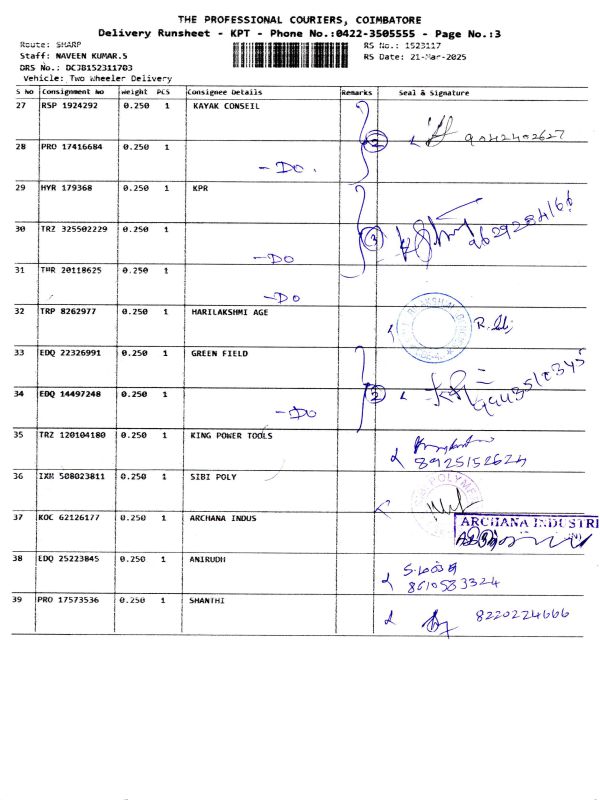 THE PROFESSIONAL COURIERS, COIMBATORE
Delivery Runsheet - KPT - Phone No.:0422-3505555 - Page No.:3
Route: SHARP
RS No.: 1523117
Staff: NAVEEN KUMAR.S
RS Date: 21-Mar-2025
DRS No.: DCJB152311703
Vehicle: Two Wheeler Delivery
S No Consignment No Weight PCS Consignee Details Remarks Seal & Signature
27 RSP 1924292 0.250 1 KAYAK CONSEIL
2 9042402627
28 PRO 17416684 0.250 1
- DO.
29 HYR 179368 0.250 1 KPR
30 TRZ 325502229 0.250 1
3
- DO
31 THR 20118625 0.250 1
- DO
32 TRP 8262977 0.250 1 HARILAKSHMI AGE
33 EDQ 22326991 0.250 1 GREEN FIELD
34 EDQ 14497248 0.250 1
2
- DO
35 TRZ 120104180 0.250 1 KING POWER TOOLS
8925152624
36 IXM 508023811 0.250 1 SIBI POLY
37 KOC 62126177 0.250 1 ARCHANA INDUS
ARCHANA INDUSTRI
38 EDQ 25223845 0.250 1 ANIRUDH
8610583324
39 PRO 17573536 0.250 1 SHANTHI
8220224666